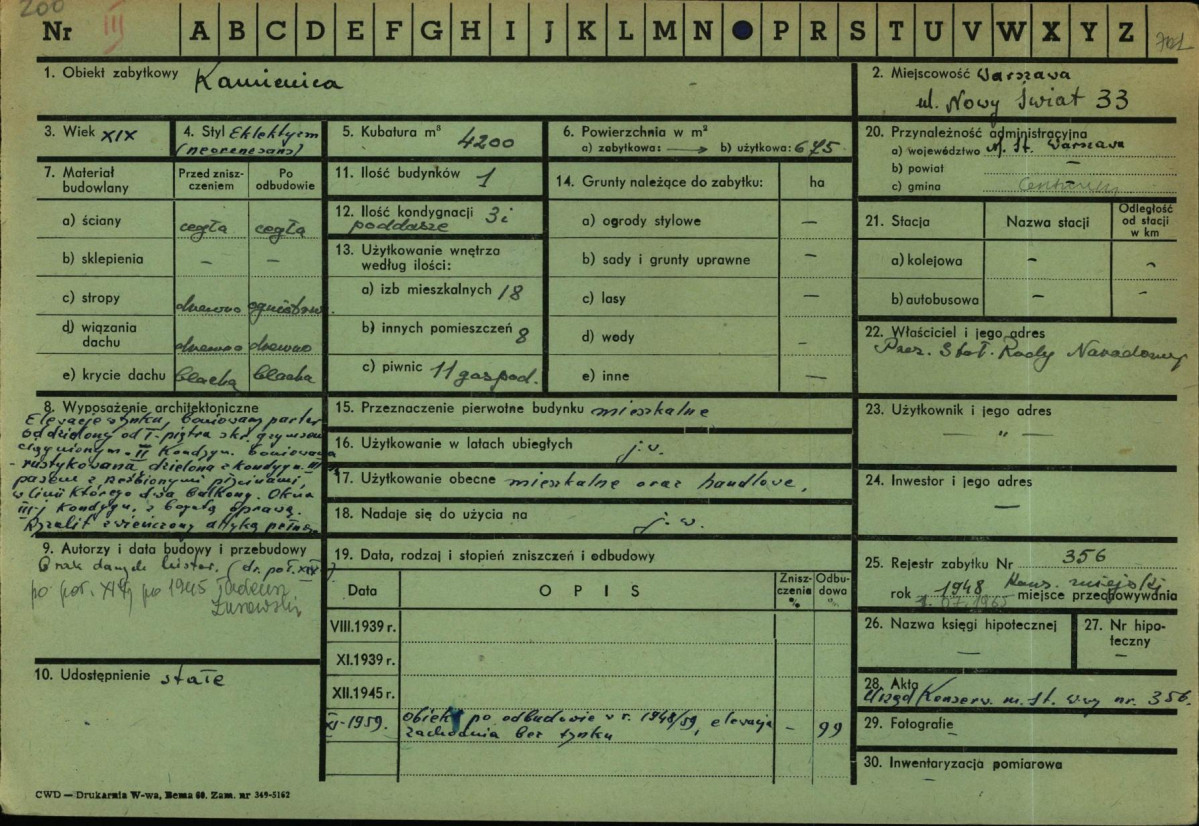 200
Nr III A B C D E F G H I J K L M N P R S T U V W X Y Z
1. Obiekt zabytkowy Kamienica
2. Miejscowość Warszawa
ul. Nowy Świat 33
3. Wiek XIX
4. Styl Eklektyzm
(neorenesans)
5. Kubatura m³ 4200
6. Powierzchnia w m²
a) zabytkowa: → b) użytkowa: 675
20. Przynależność administracyjna
a) województwo M. St. Warszawa
b) powiat —
c) gmina Centrum
7. Materiał budowlany
Przed zniszczeniem
Po odbudowie
a) ściany cegła cegła
b) sklepienia — —
c) stropy drewno ogniotrw.
d) wiązania dachu drewno drewno
e) krycie dachu blacha blacha
11. Ilość budynków 1
12. Ilość kondygnacji 3 i
poddasze
13. Użytkowanie wnętrza
według ilości:
a) izb mieszkalnych 18
b) innych pomieszczeń 8
c) piwnic 11 gospod.
14. Grunty należące do zabytku: ha
a) ogrody stylowe —
b) sady i grunty uprawne —
c) lasy —
d) wody —
e) inne —
21. Stacja Nazwa stacji Odległość
od stacji
w km
a) kolejowa - -
b) autobusowa - -
22. Właściciel i jego adres
Prez. Stoł. Rady Narodowej
8. Wyposażenie architektoniczne
Elewacje z tynku, boniowany parter
oddzielony od I. piętra skr. gzymsem
ciągnionym. II Kondygn. boniowana
- rustykowana, dzielona z kondygn. III
pasem z rzeźbionymi płycinami,
w linii którego dwa balkony. Okna
III-j kondygn. z bogatą oprawą.
Ryzalit zwieńczony attyką pełną.
15. Przeznaczenie pierwotne budynku mieszkalne
16. Użytkowanie w latach ubiegłych j.w.
17. Użytkowanie obecne mieszkalne oraz handlowe,
18. Nadaje się do użycia na j.w.
23. Użytkownik i jego adres
— " —
24. Inwestor i jego adres
—
9. Autorzy i data budowy i przebudowy
Brak danych histor. (dr. poł. XIX)
po poł. XIX, po 1945 Tadeusz
Żurowski
10. Udostępnienie stałe
19. Data, rodzaj i stopień zniszczeń i odbudowy
Data OPIS Zniszczenie % Odbudowa %
VIII.1939 r.
XI.1939 r.
XII.1945 r.
XI-1959. Obiekt po odbudowie w r. 1948/59, elewacja
zachodnia bez tynku - 99
25. Rejestr zabytku Nr 356
rok 1948 Kons. miejski miejsce przechowywania
1.07.1965
26. Nazwa księgi hipotecznej
—
27. Nr hipoteczny
—
28. Akta
Urząd Konserw. m. St. Wwy nr. 356.
29. Fotografie
-
30. Inwentaryzacja pomiarowa
-
CWD — Drukarnia W-wa, Bema 60. Zam. nr 349-5162